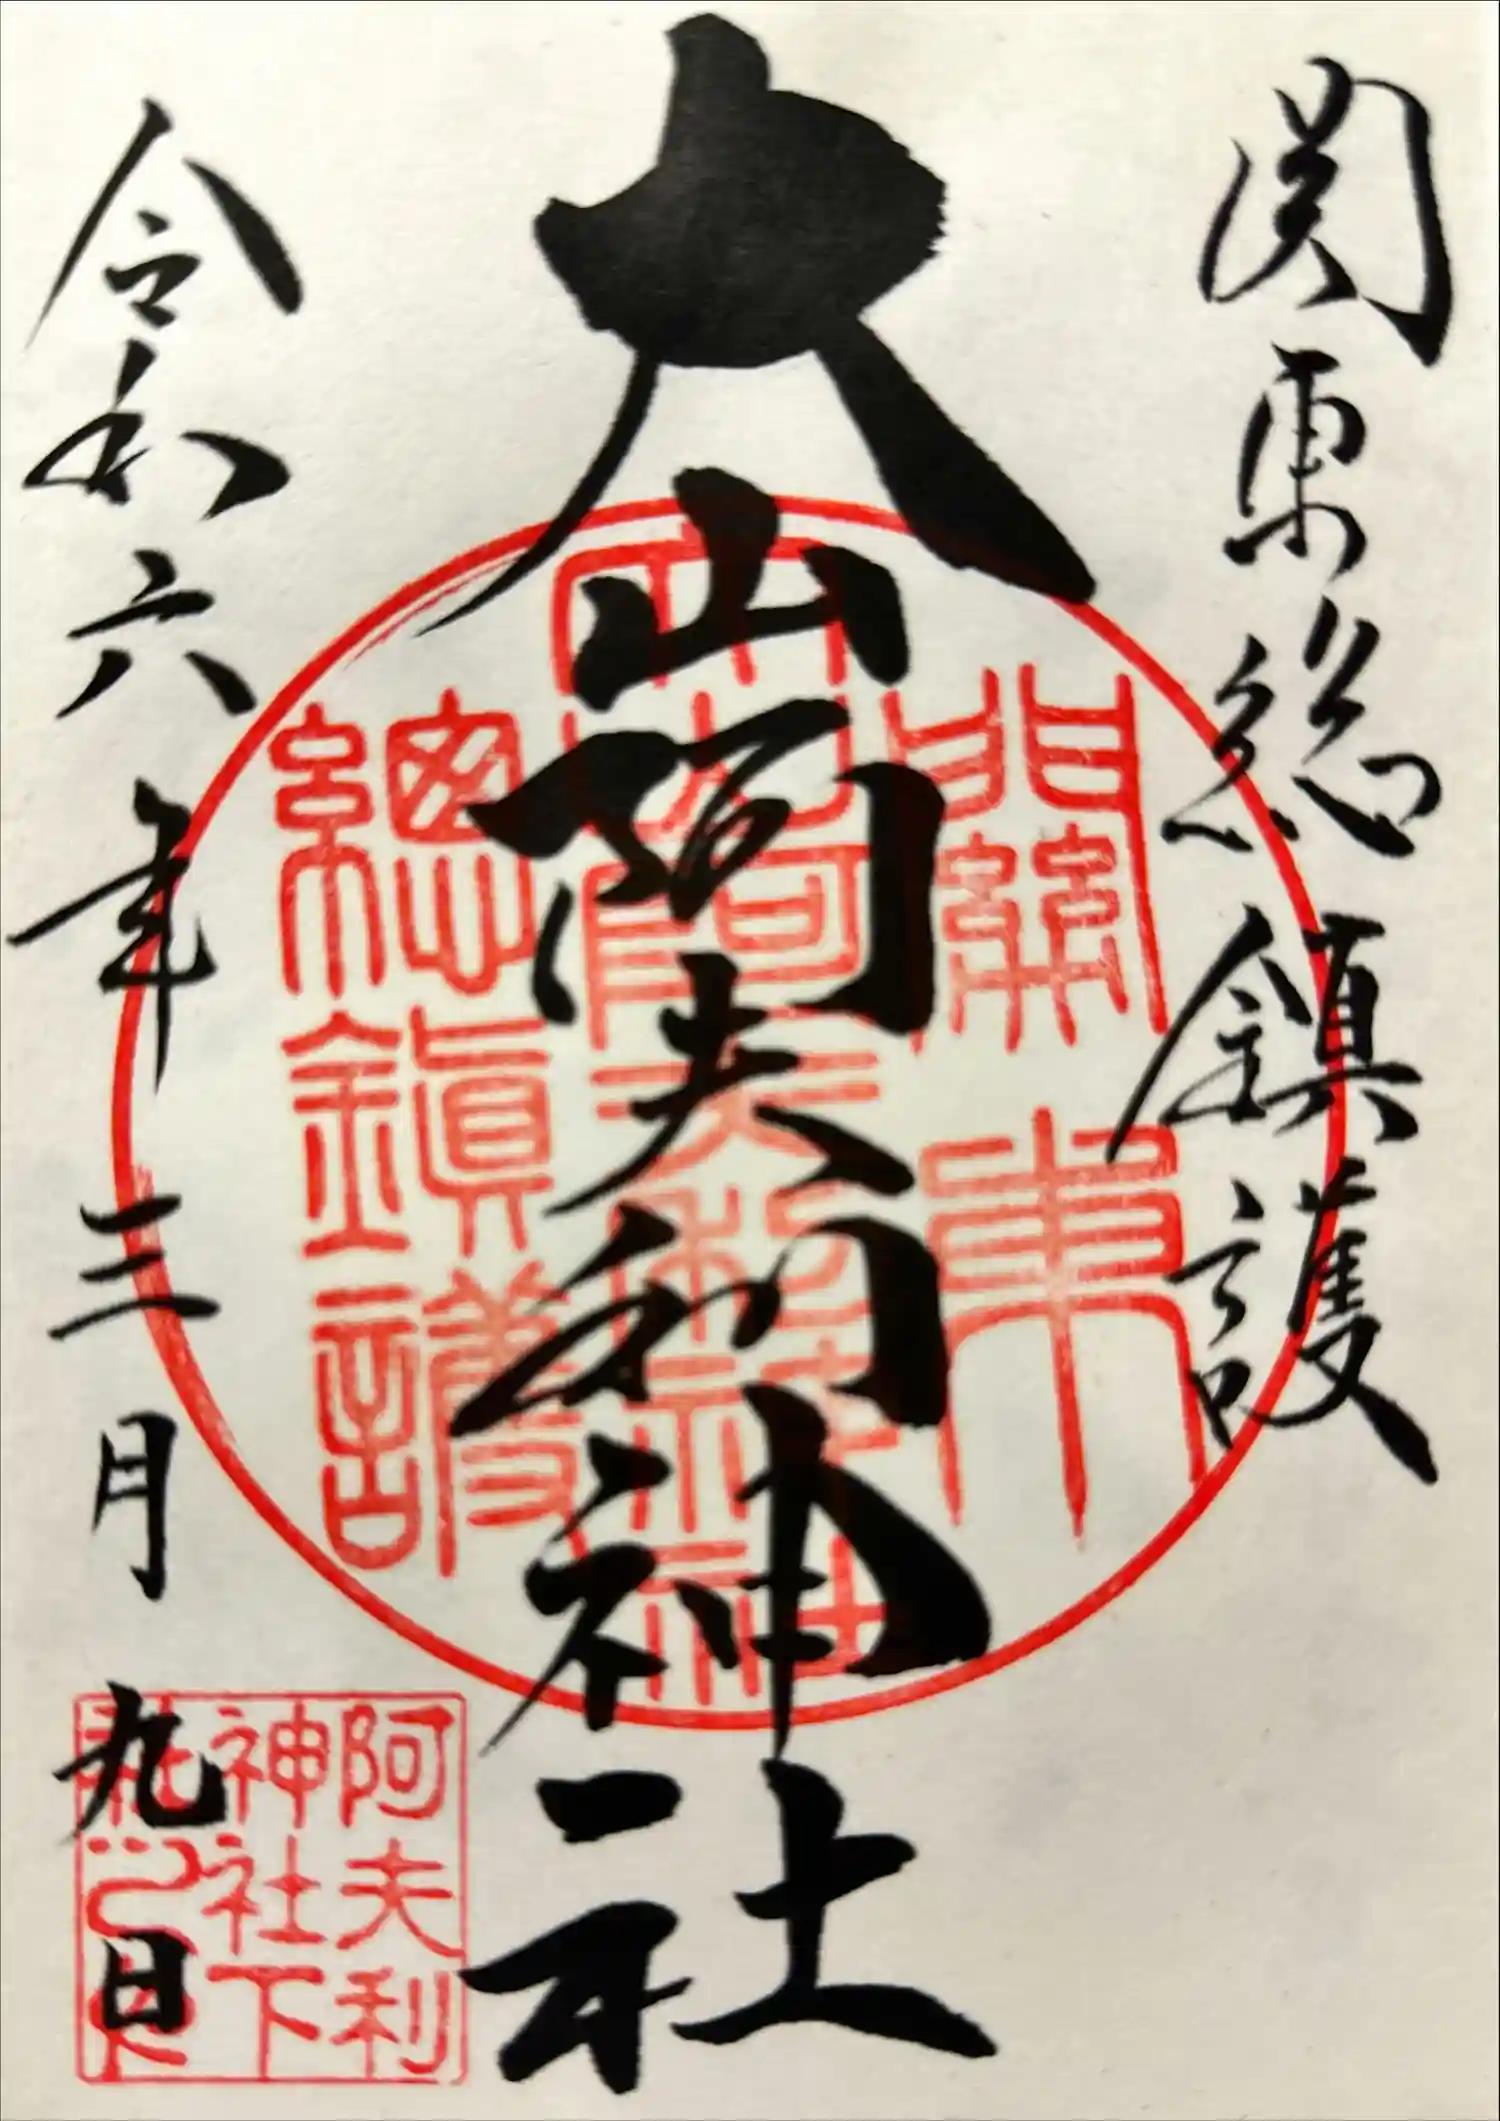 関東総鎮護
大山阿夫利神社
令和六年三月九日
關東
大山阿夫利神社
總鎮護
阿夫利
神社下